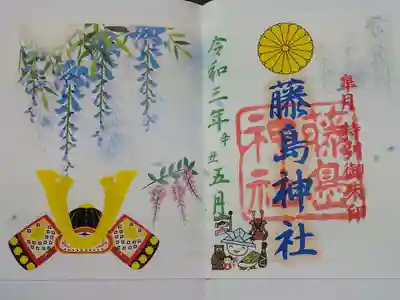 皐月特別御朱印
藤島神社
藤島神社
令和三年辛丑五月